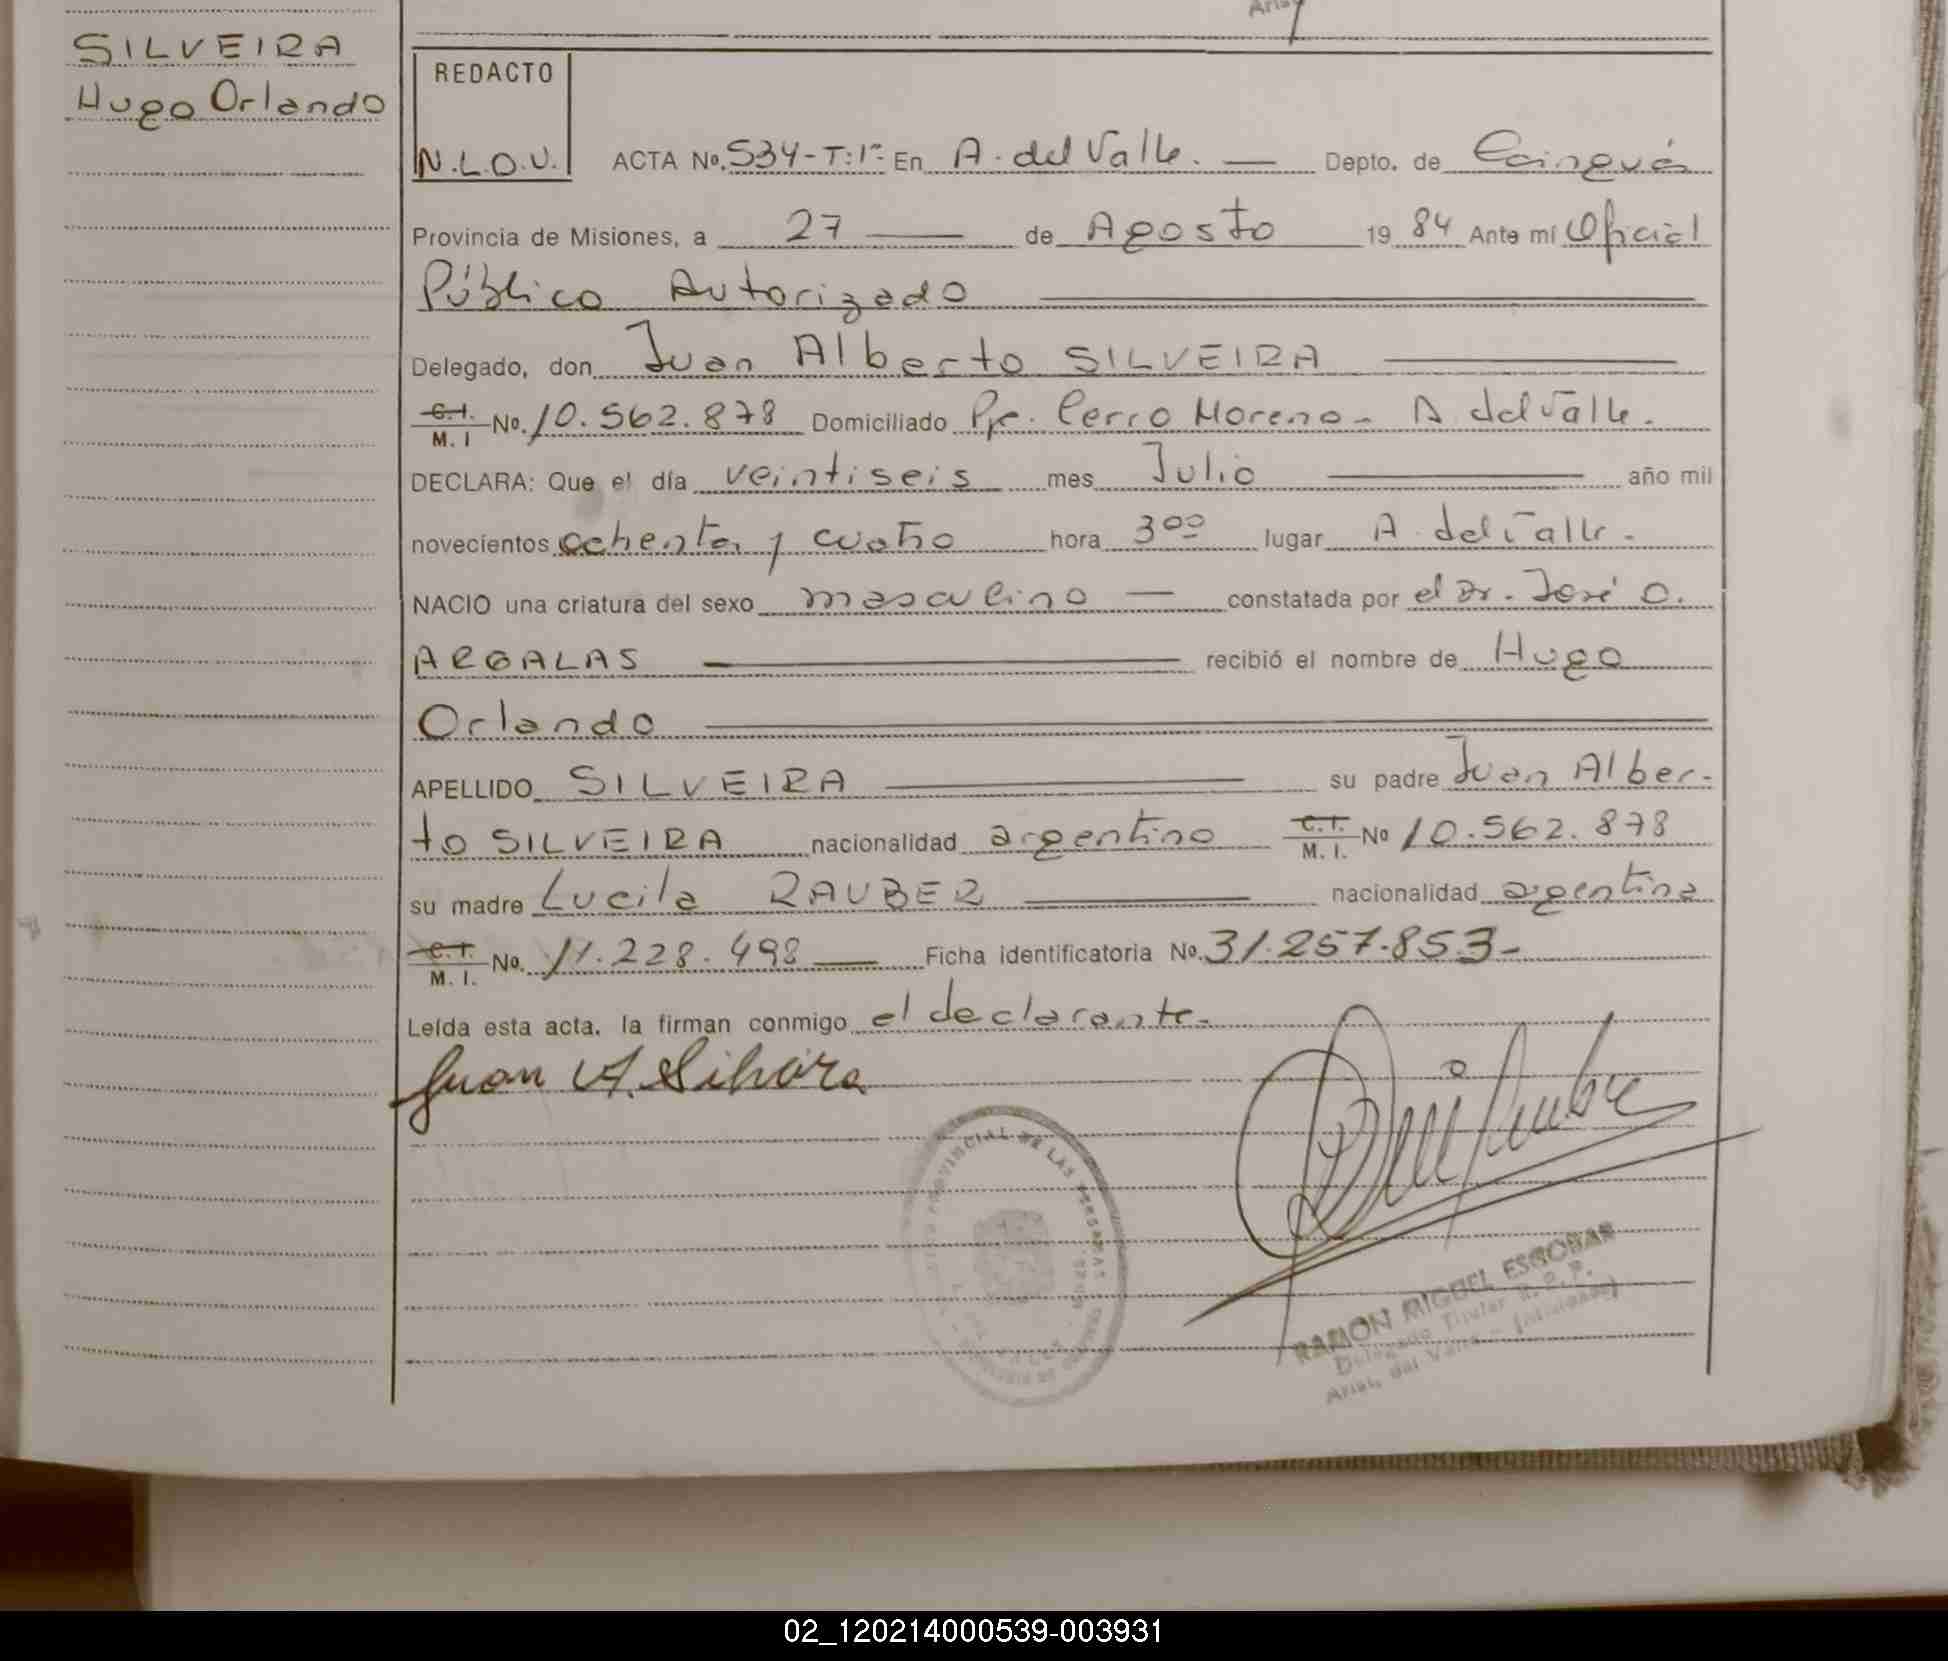 SILVEIRA
Hugo Orlando
REDACTO
N.L.O.V.
ACTA No. 534-T:1º En A. del Valle. — Depto. de Cainguás
Provincia de Misiones, a 27 — de Agosto 1984 Ante mí Oficial
Público Autorizado
Delegado, don Juan Alberto SILVEIRA
C.I. M. I No. 10.562.878 Domiciliado Pje. Cerro Moreno - A del Valle.
DECLARA: Que el día veintiseis mes Julio — año mil
novecientos ochenta y cuatro hora 3 00 lugar A. del Valle.
NACIO una criatura del sexo masculino — constatada por el Dr. José O.
ARGALAS — recibió el nombre de Hugo
Orlando
APELLIDO SILVEIRA — su padre Juan Alber-
to SILVEIRA nacionalidad argentino C.I. M. I. No 10.562.878
su madre Lucila RAUBER — nacionalidad argentina
C.I. M. I. No. 11.228.498 — Ficha identificatoria No. 31.257.853-
Leída esta acta, la firman conmigo el declarante.
Juan A. Silveira
PROVINCIAL DE LAS PERSONAS
RAMON MIGUEL ESCOBAR
Delegado Titular R. P. P.
Arist. del Valle - (Misiones)
02_120214000539-003931